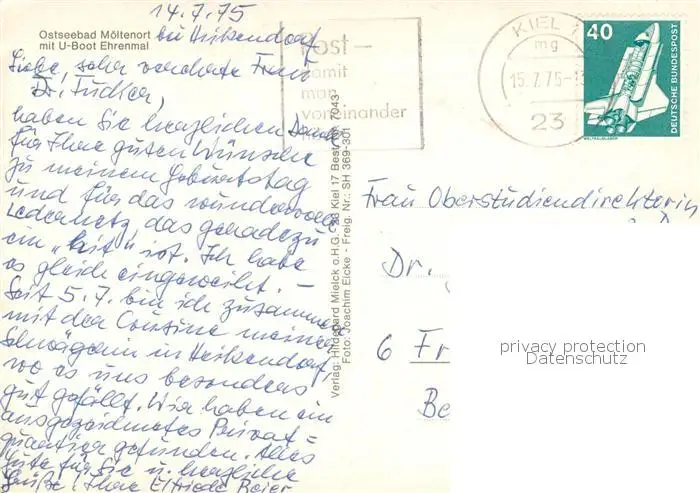 Ostseebad Möltenort
mit U-Boot Ehrenmal
14.7.75
bei Heikendorf
Liebe, sehr verehrte Frau
Dr.
haben Sie herzlichen Dank
für Ihre guten Wünsche
zu meinem Geburtstag
und für das wundervolle
Ledernetz, das geradezu
ein "hit" ist. Ich habe
es gleich eingeweiht. –
Seit 5.7. bin ich zusammen
mit der Cousine meiner
Schwägerin in Heikendorf,
wo es uns besonders
gut gefällt. Wir haben ein
ausgezeichnetes Privat=
quartier gefunden. Alles
Gute für Sie u. herzliche
Grüße! Ihre Elfriede Beier
Verlag: Hildegard Mielck o.H.G. 23 Kiel 17 Best.-Nr. 7043
Foto: Joachim Eicke - Freig. Nr.: SH 369-301
Post –
damit
man
voneinander
KIEL 1
mg
15.7.75-1
23
40
DEUTSCHE BUNDESPOST
WELTRAUMLABOR
Frau Oberstudiendirektorin
Dr.
6 Fr
Be
privacy protection
Datenschutz